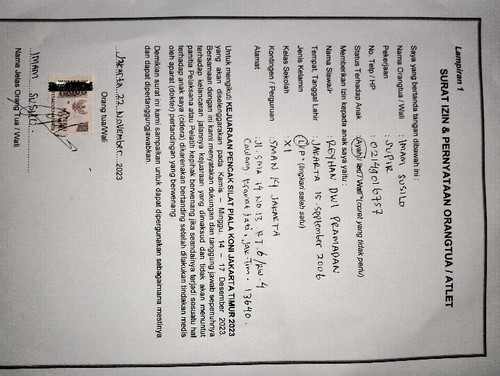 Lampiran 1
SURAT IZIN & PERNYATAAN ORANGTUA / ATLET
Saya yang bertanda tangan dibawah ini :
Nama Orangtua / Wali : IMAN SUSILO
Pekerjaan : SUPIR
No. Telp / HP
Status Terhadap Anak : (Ayah/ Ibu/ Wali* (coret yang tidak perlu)
Memberikan Izin kepada anak saya yaitu :
Nama Siswa/i : REYHAN DWI PRAMADAN
Tempat, Tanggal Lahir : JAKARTA 15 September 2006
Jenis Kelamin : L/P * (lingkari salah satu)
Kelas Sekolah : XI
Kontingen / Perguruan : SMAN 64 JAKARTA
Alamat : JL. SMA 14 NO.13 RT.6/RW.4
Jak-Tim. 13640.
Untuk mengikuti KEJUARAAN PENCAK SILAT PIALA KONI JAKARTA TIMUR 2023
yang akan diselenggarakan pada Kamis – Minggu, 14 – 17 Desember 2023
Bersamaan dengan ini kami menyatakan dukungan dan tanggung jawab sepenuhnya
terhadap kelancaran jalannya kejuaraan yang dimaksud dan tidak akan menuntut
panitia Pelaksana atau Pelatih kepihak berwenang jika seandainya terjadi sesuatu hal
terhadap anak saya (cidera) dikarenakan bertanding setelah dilakukan tindakan medis
oleh aparat (dokter) pertandingan yang berwenang.
Demikian surat ini kami sampaikan untuk dapat dipergunakan sebagaimana mestinya
dan dapat dipertanggungjawabkan.
Jakarta, 22 November 2023
Orang tua/Wali
IMAN SUSILO
Nama Jelas Orang Tua / Wali